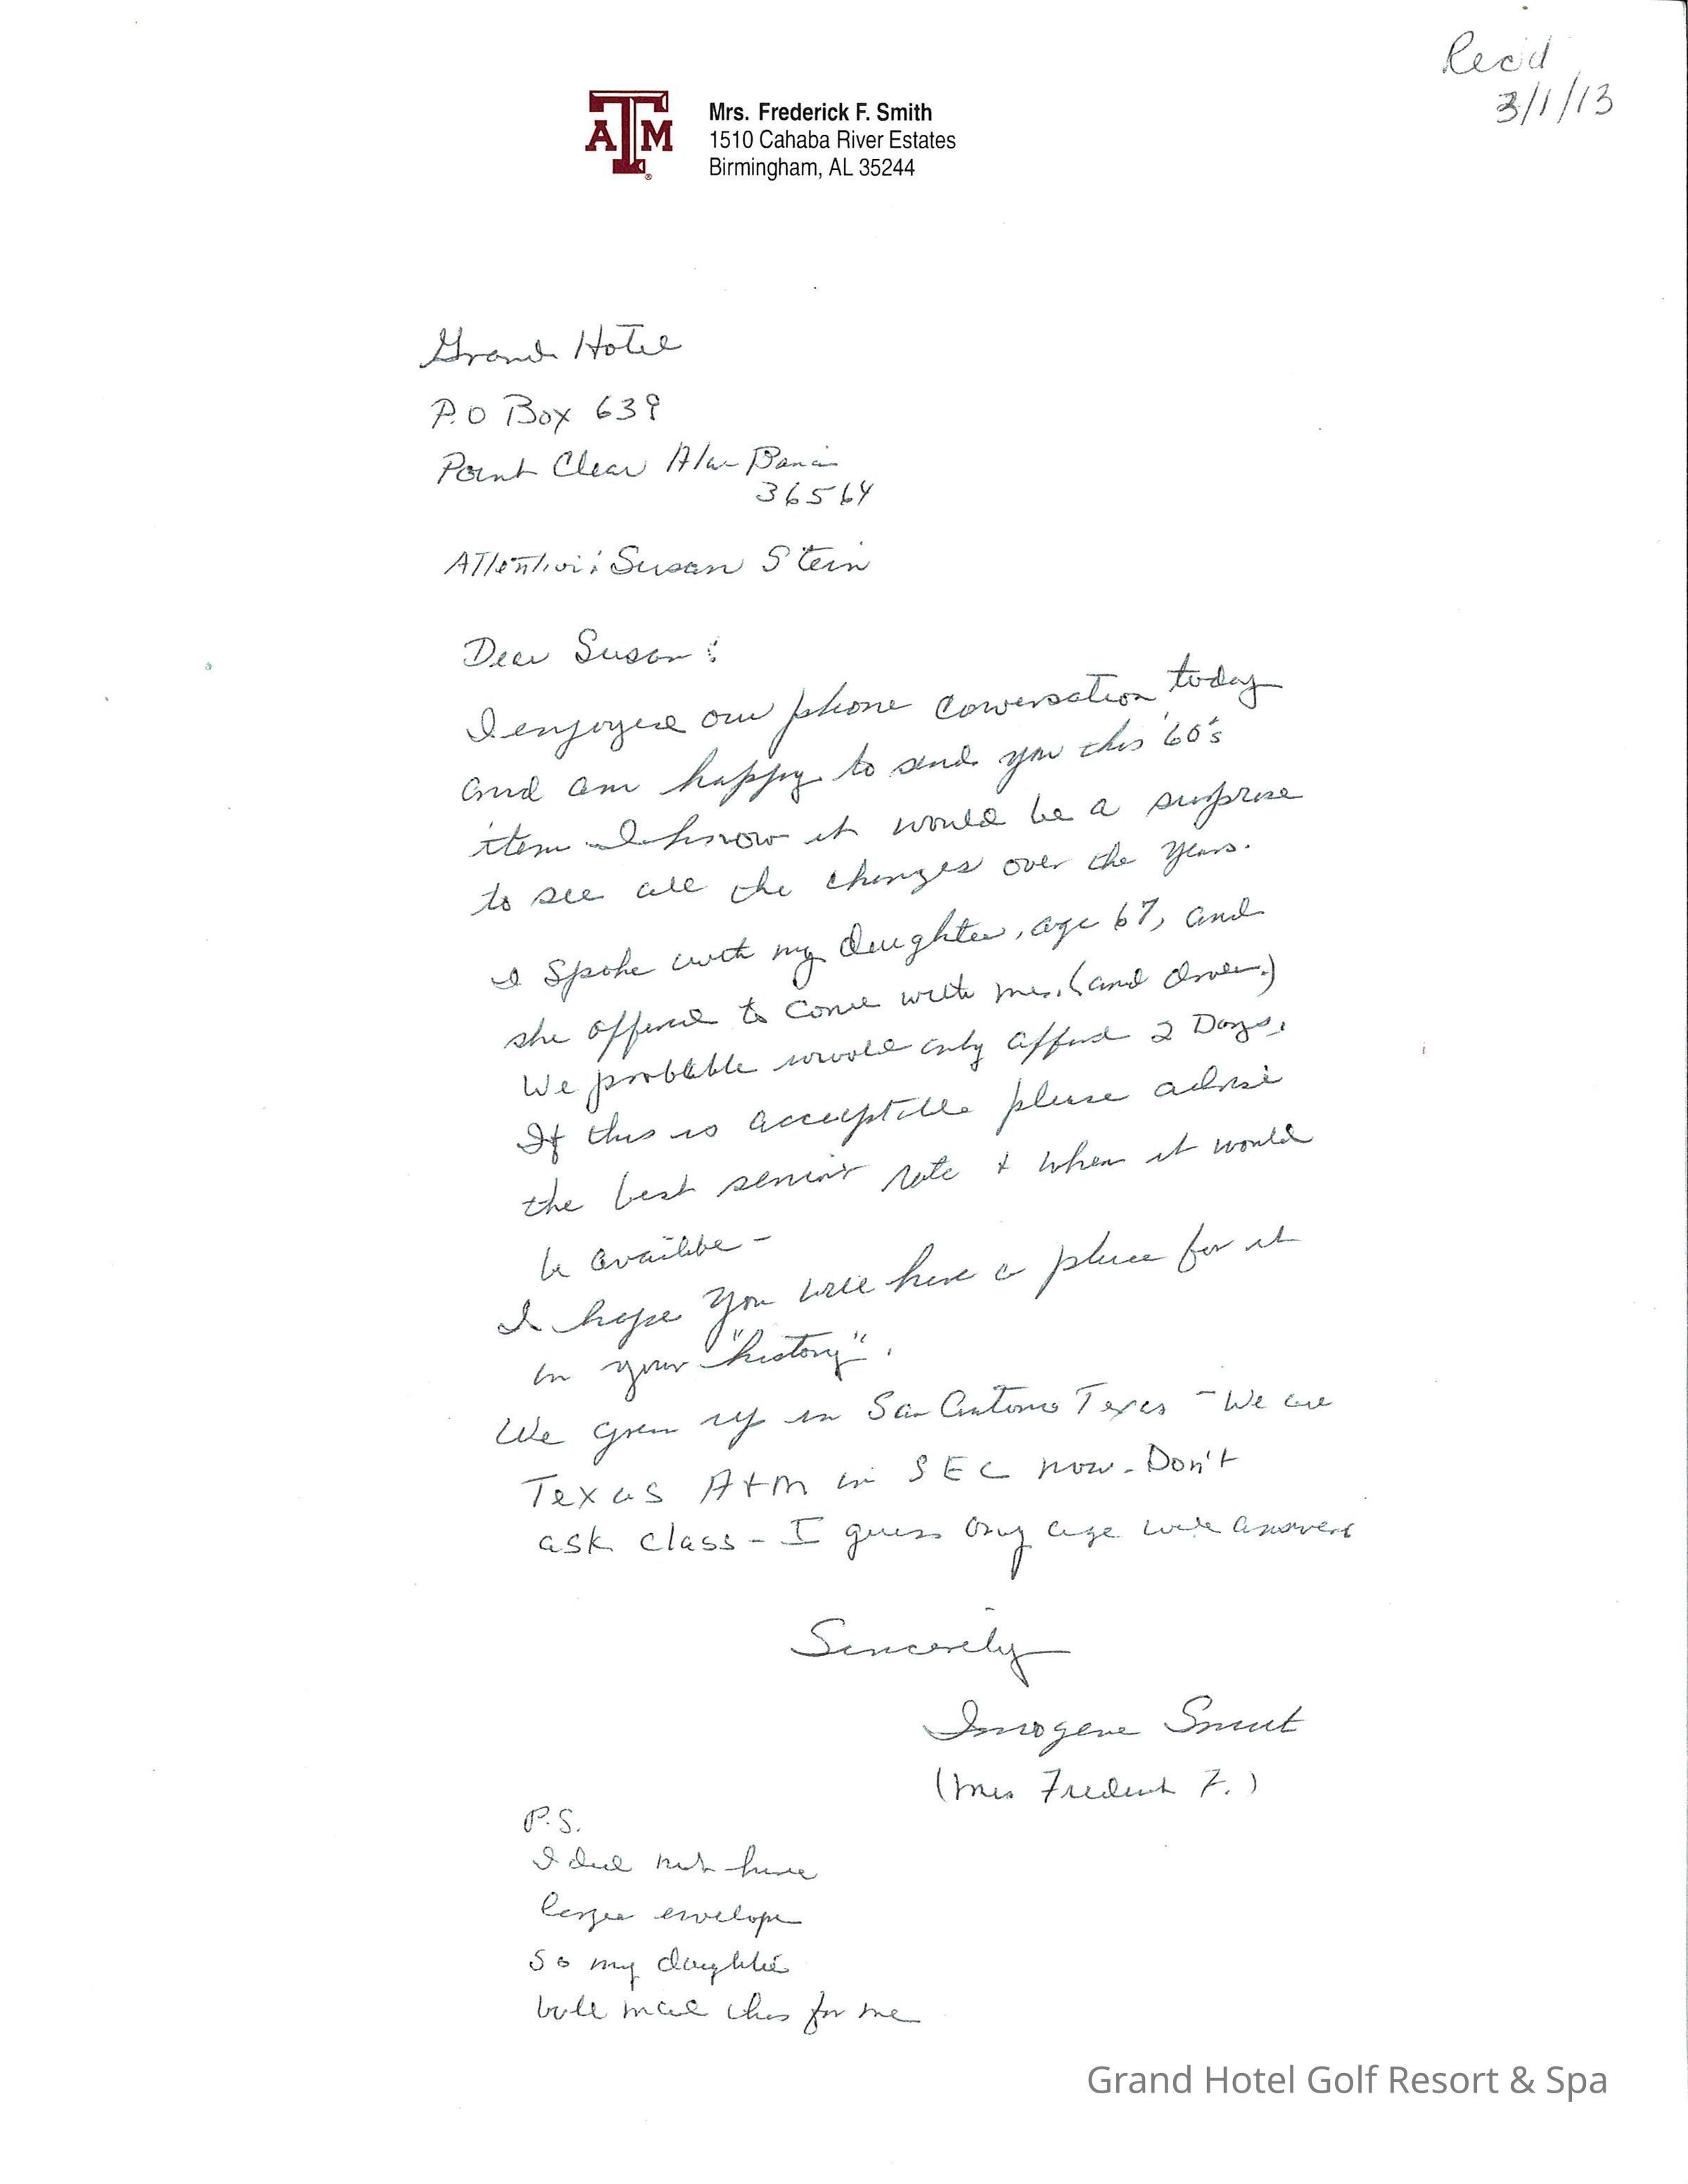 Rec'd
3/1/13
ATM
Mrs. Frederick F. Smith
1510 Cahaba River Estates
Birmingham, AL 35244
Grand Hotel
P.O Box 639
Point Clear Alabama
36564
Attention: Susan Stein
Dear Susan:
I enjoyed our phone conversation today
and am happy to send you this '60's
item I know it would be a surprise
to see all the changes over the years.
I spoke with my daughter, age 67, and
she offered to come with me. (and drive.)
We probable would only afford 2 Days.
If this is acceptable please advise
the best senior rate + when it would
be availibe -
I hope you will have a place for it
in your "history".
We grew up in San Antonio Texas - We are
Texas A+M in SEC now - Don't
ask class - I guess my age will answer
Sincerely
Imogene Smith
(Mrs Frederick F.)
P.S.
I did not have
larger envelope
so my daughter
will mail this for me
Grand Hotel Golf Resort & Spa